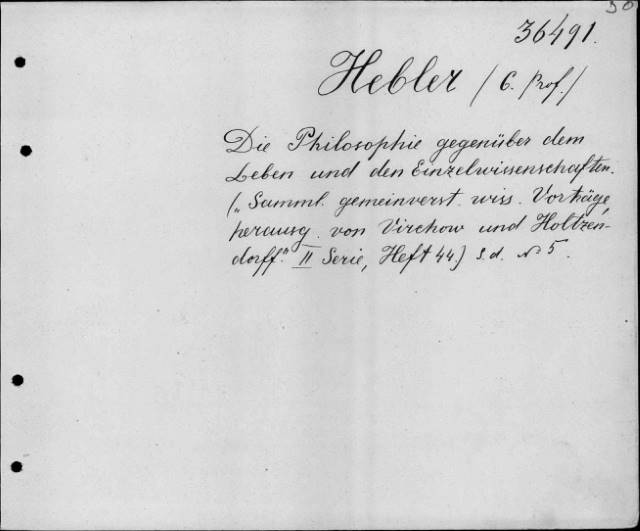 36491.
Hebler / C. Prof. /
Die Philosophie gegenüber dem
Leben und den Einzelwissenschaften.
(„Samml. gemeinverst. wiss. Vorträge,
herausg. von Virchow und Holtzen-
dorff." II Serie, Heft 44.) s.d. № 5.